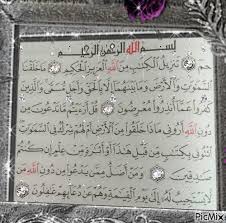 بسم الله الرحمن الرحيم
حم ۝ تنزيل الكتاب من الله العزيز الحكيم ۝ ما خلقنا
السموات والأرض وما بينهما إلا بالحق وأجل مسمى والذين
كفروا عما أنذروا معرضون ۝ قل أرءيتم ما تدعون من
دون الله أروني ماذا خلقوا من الأرض أم لهم شرك في السموت
ائتوني بكتب من قبل هذا أو أثرة من علم إن كنتم
صدقين ۝ ومن أضل ممن يدعوا من دون الله من
لا يستجيب له إلى يوم القيمة وهم عن دعائهم غفلون ۝
PicMix